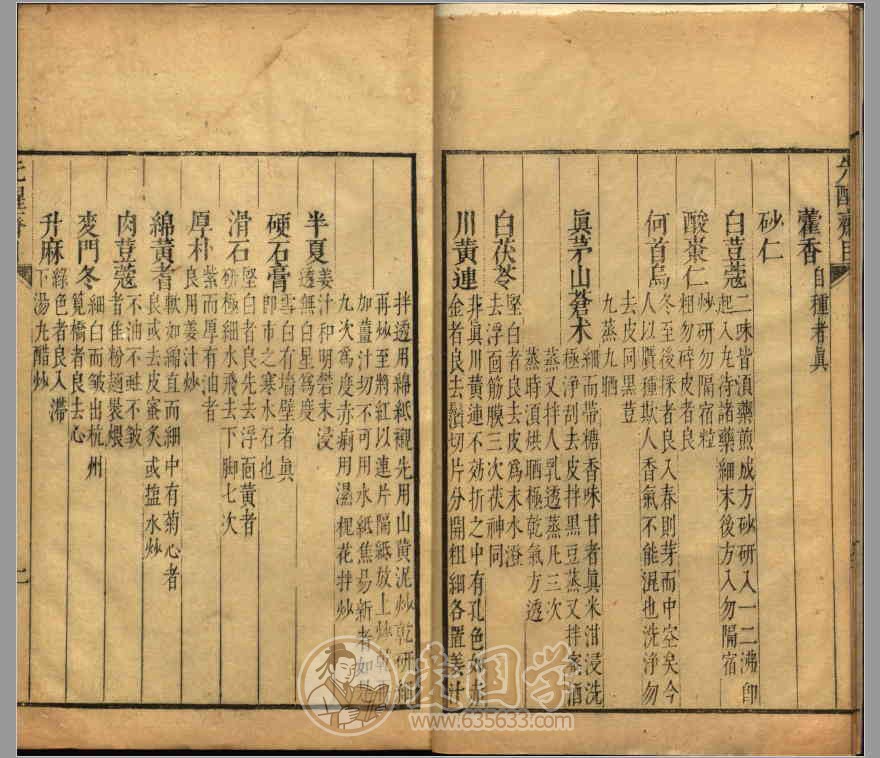 先醒齋目
藿香自種者眞
砂仁
白荳蔻二味皆湏藥煎成方砂研入一二沸卽
起入丸待諸藥細末後方入勿隔宿
酸棗仁炒研勿隔宿粒
粗勿碎皮者良
何首烏冬至後採者良入春則芽而中空矣今
人以贋種欺人香氣不能混也洗淨勿
去皮同黒荳
九蒸九晒
眞茅山蒼朮細而帶糖香味甘者眞米泔浸洗
極淨刮去皮拌黒豆蒸又拌蜜酒
蒸又拌人乳透蒸凡三次
蒸時湏烘晒極乾氣方透
白茯苓堅白者良去皮爲末水澄
去浮靣筋膜三次茯神同
川黃連非眞川黃連不効折之中有孔色如赤
金者良去鬚切片分開粗細各置姜汁
拌透用綿紙襯先用山黄泥炒乾研細
再炒至將紅以連片隔紙放上炒乾
加薑汁切不可用水紙焦易新者如
九次爲度赤痢用濕槐花拌炒
半夏姜汁和明礬末浸
透無白星爲度
硬石膏雪白有墻壁者眞
卽市之寒水石也
滑石堅白者良先去浮面黄者
研極細水飛去下脚七次
厚朴紫而厚有油者
良用姜汁炒
綿黃耆軟如綿直而細中有菊心者
良或去皮蜜炙或塩水炒
肉荳蔻不油不蛀不皺
者佳粉麵裴煨
麥門冬細白而皺出杭州
筧橋者良去心
升麻綠色者良入滯
下湯丸醋炒
先醒齋
读国学
www.635633.com